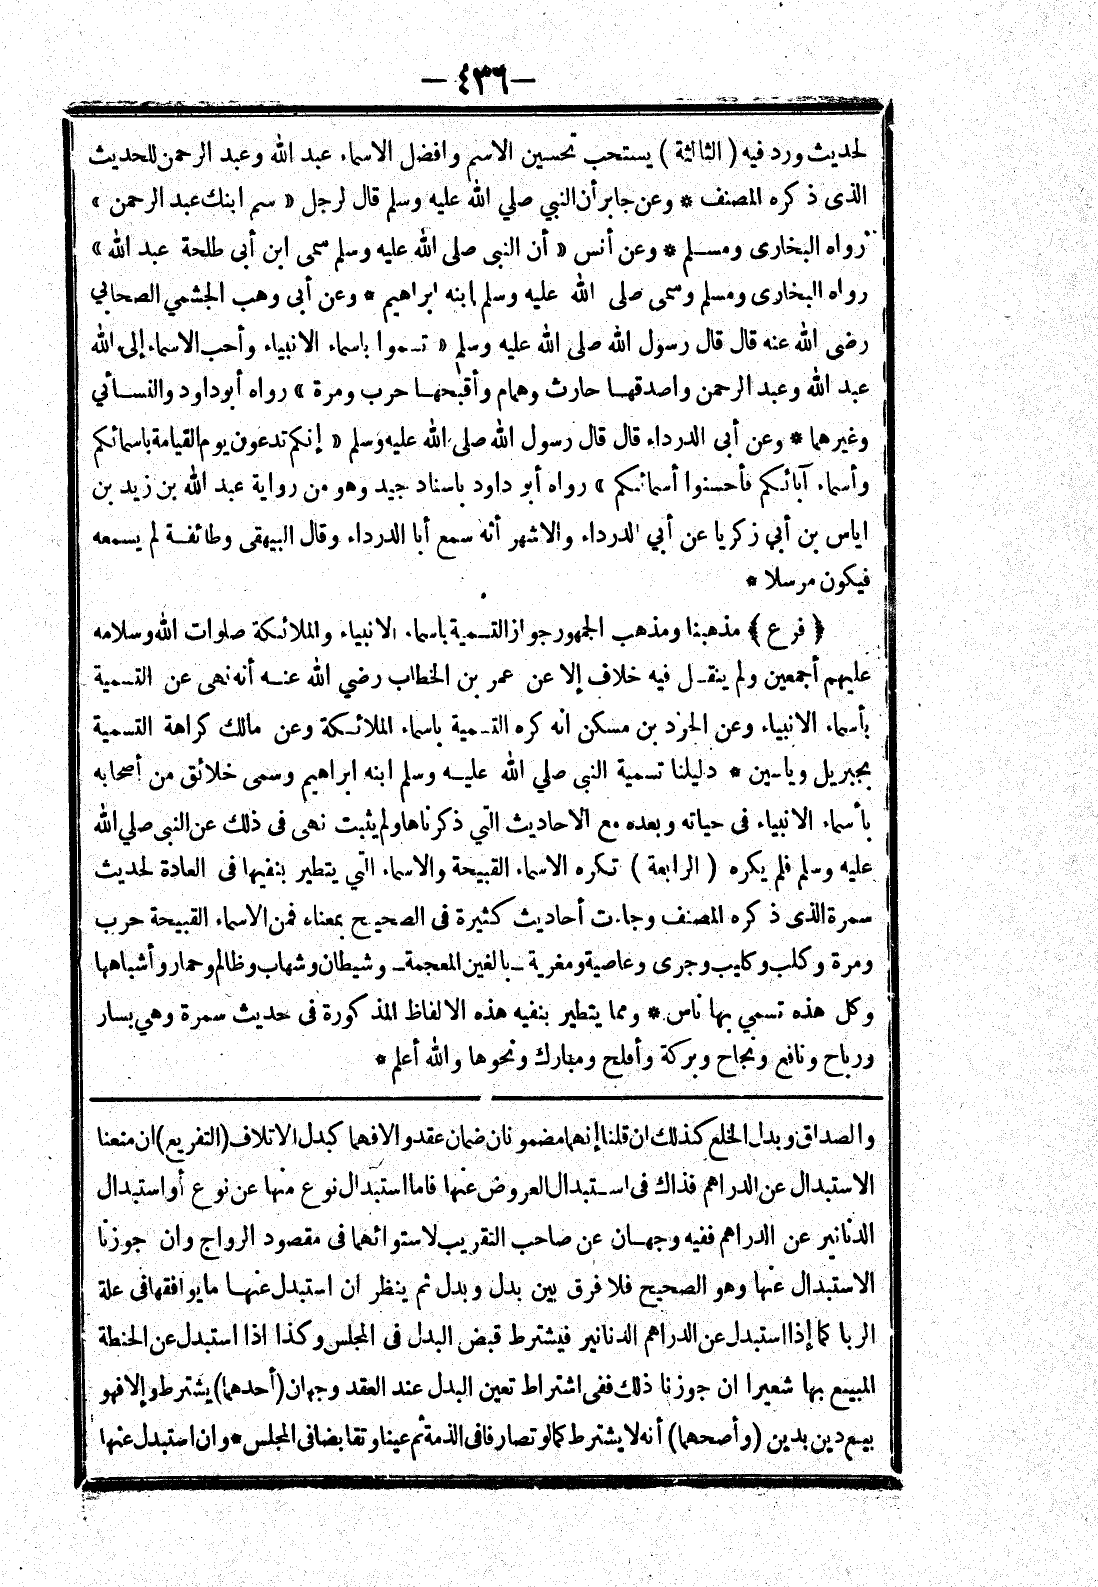 — ٤٣٦ —
لحديث ورد فيه ( الثالثة ) يستحب تحسين الاسم وافضل الاسماء عبد الله وعبد الرحمن للحديث
الذى ذكره المصنف * وعن جابر أن النبي صلي الله عليه وسلم قال لرجل « سم ابنك عبد الرحمن »
رواه البخارى ومسلم * وعن أنس « أن النبى صلى الله عليه وسلم سمى ابن أبى طلحة عبد الله »
رواه البخارى ومسلم وسمى صلى الله عليه وسلم ابنه ابراهيم * وعن أبى وهب الجشمي الصحابي
رضى الله عنه قال قال رسول الله صلى الله عليه وسلم « تسموا باسماء الانبياء وأحب الاسماء إلى الله
عبد الله وعبد الرحمن واصدقها حارث وهمام وأقبحها حرب ومرة » رواه أبو داود والنسائي
وغيرهما * وعن أبى الدرداء قال قال رسول الله صلى الله عليه وسلم « إنكم تدعون يوم القيامة باسمائكم
وأسماء آبائكم فأحسنوا أسمائكم » رواه أبو داود باسناد جيد وهو من رواية عبد الله بن زيد بن
اياس بن أبي زكريا عن أبي الدرداء والاشهر أنه سمع أبا الدرداء وقال البيهقى وطائفة لم يسمعه
فيكون مرسلا *
﴿ فرع ﴾ مذهبنا ومذهب الجمهور جواز التسمية باسماء الانبياء والملائكة صلوات الله وسلامه
عليهم أجمعين ولم ينقل فيه خلاف إلا عن عمر بن الخطاب رضي الله عنه أنه نهى عن التسمية
بأسماء الانبياء وعن الحرد بن مسكن انه كره التسمية باسماء الملائكة وعن مالك كراهة التسمية
بجبريل وياسين * دليلنا تسمية النبى صلي الله عليه وسلم ابنه ابراهيم وسمى خلائق من أصحابه
بأسماء الانبياء فى حياته وبعده مع الاحاديث التي ذكرناها ولم يثبت نهى فى ذلك عن النبى صلي الله
عليه وسلم فلم يكره ( الرابعة ) تكره الاسماء القبيحة والاسماء التي يتطير بنفيها فى العادة لحديث
سمرة الذى ذكره المصنف وجاءت أحاديث كثيرة فى الصحيح بمعناه فمن الاسماء القبيحة حرب
ومرة وكلب وكليب وجرى وعاصية ومغرية - بالغين المعجمة - وشيطان وشهاب وظالم وحمار وأشباهها
وكل هذه تسمي بها ناس * ومما يتطير بنفيه هذه الالفاظ المذكورة فى حديث سمرة وهي يسار
ورباح ونافع ونجاح وبركة وأفلح ومبارك ونحوها والله أعلم *
والصداق وبدل الخلع كذلك ان قلنا إنهما مضمونان ضمان عقد والا فهما كبدل الاتلاف (التفريع) ان منعنا
الاستبدال عن الدراهم فذاك فى استبدال العروض عنها فاما استبدال نوع منها عن نوع أو استبدال
الدنانير عن الدراهم ففيه وجهان عن صاحب التقريب لاستوائهما فى مقصود الرواج وان جوزنا
الاستبدال عنها وهو الصحيح فلا فرق بين بدل وبدل ثم ينظر ان استبدل عنها ما يوافقها فى علة
الربا كما إذا استبدل عن الدراهم الدنانير فيشترط قبض البدل فى المجلس وكذا اذا استبدل عن الحنطة
المبيع بها شعيرا ان جوزنا ذلك ففى اشتراط تعين البدل عند العقد وجهان (أحدهما) يشترط وإلا فهو
بيع دين بدين (وأصحهما) أنه لا يشترط كما لو تصارفا فى الذمة ثم عينا وتقابضا فى المجلس * وان استبدل عنها